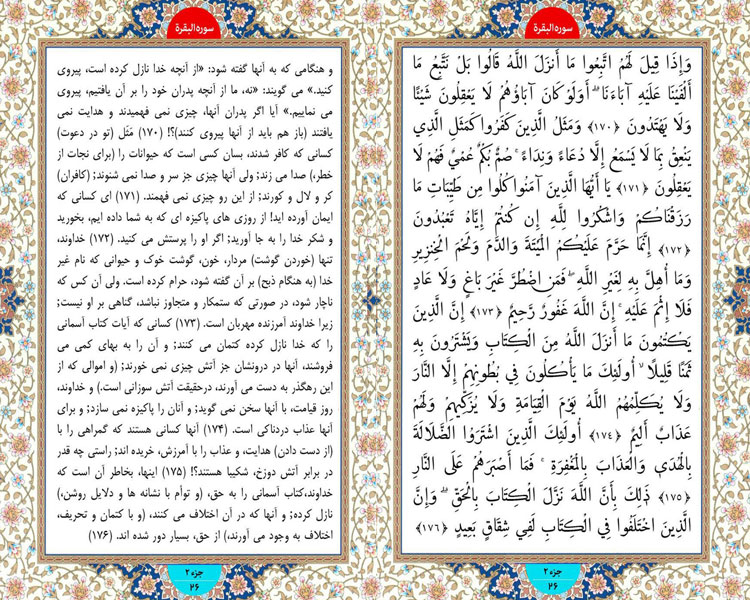 سوره‌البقرة
وَإِذَا قِيلَ لَهُمُ اتَّبِعُوا مَا أَنزَلَ اللَّهُ قَالُوا بَلْ نَتَّبِعُ مَا
أَلْفَيْنَا عَلَيْهِ آبَاءَنَا ۗ أَوَلَوْ كَانَ آبَاؤُهُمْ لَا يَعْقِلُونَ شَيْئًا
وَلَا يَهْتَدُونَ ﴿۱۷۰﴾ وَمَثَلُ الَّذِينَ كَفَرُوا كَمَثَلِ الَّذِي
يَنْعِقُ بِمَا لَا يَسْمَعُ إِلَّا دُعَاءً وَنِدَاءً ۚ صُمٌّ بُكْمٌ عُمْيٌ فَهُمْ لَا
يَعْقِلُونَ ﴿۱۷۱﴾ يَا أَيُّهَا الَّذِينَ آمَنُوا كُلُوا مِن طَيِّبَاتِ مَا
رَزَقْنَاكُمْ وَاشْكُرُوا لِلَّهِ إِن كُنتُمْ إِيَّاهُ تَعْبُدُونَ
﴿۱۷۲﴾ إِنَّمَا حَرَّمَ عَلَيْكُمُ الْمَيْتَةَ وَالدَّمَ وَلَحْمَ الْخِنزِيرِ
وَمَا أُهِلَّ بِهِ لِغَيْرِ اللَّهِ ۖ فَمَنِ اضْطُرَّ غَيْرَ بَاغٍ وَلَا عَادٍ
فَلَا إِثْمَ عَلَيْهِ ۚ إِنَّ اللَّهَ غَفُورٌ رَّحِيمٌ ﴿۱۷۳﴾ إِنَّ الَّذِينَ
يَكْتُمُونَ مَا أَنزَلَ اللَّهُ مِنَ الْكِتَابِ وَيَشْتَرُونَ بِهِ
ثَمَنًا قَلِيلًا ۙ أُولَٰئِكَ مَا يَأْكُلُونَ فِي بُطُونِهِمْ إِلَّا النَّارَ
وَلَا يُكَلِّمُهُمُ اللَّهُ يَوْمَ الْقِيَامَةِ وَلَا يُزَكِّيهِمْ وَلَهُمْ
عَذَابٌ أَلِيمٌ ﴿۱۷۴﴾ أُولَٰئِكَ الَّذِينَ اشْتَرَوُا الضَّلَالَةَ
بِالْهُدَىٰ وَالْعَذَابَ بِالْمَغْفِرَةِ ۚ فَمَا أَصْبَرَهُمْ عَلَى النَّارِ
﴿۱۷۵﴾ ذَٰلِكَ بِأَنَّ اللَّهَ نَزَّلَ الْكِتَابَ بِالْحَقِّ ۗ وَإِنَّ
الَّذِينَ اخْتَلَفُوا فِي الْكِتَابِ لَفِي شِقَاقٍ بَعِيدٍ ﴿۱۷۶﴾
جزء ۲
۲۶
سوره‌البقرة
و هنگامی که به آنها گفته شود: «از آنچه خدا نازل کرده است، پیروی
کنید.» می گویند: «نه، ما از آنچه پدران خود را بر آن یافتیم، پیروی
می نماییم.» آیا اگر پدران آنها، چیزی نمی فهمیدند و هدایت نمی
یافتند (باز هم باید از آنها پیروی کنند)؟! (۱۷۰) مَثَل (تو در دعوت)
کسانی که کافر شدند، بسان کسی است که حیوانات را (برای نجات از
خطر،) صدا می زند; ولی آنها چیزی جز سر و صدا نمی شنوند; (کافران)
کر و لال و کورند; از این رو چیزی نمی فهمند. (۱۷۱) ای کسانی که
ایمان آورده اید! از روزی های پاکیزه ای که به شما داده ایم، بخورید
و شکر خدا را به جا آورید; اگر او را پرستش می کنید. (۱۷۲) خداوند،
تنها (خوردن گوشت) مردار، خون، گوشت خوک و حیوانی که نام غیر
خدا (به هنگام ذبح) بر آن گفته شود، حرام کرده است. ولی آن کس که
ناچار شود، در صورتی که ستمکار و متجاوز نباشد، گناهی بر او نیست;
زیرا خداوند آمرزنده مهربان است. (۱۷۳) کسانی که آیات کتاب آسمانی
را که خدا نازل کرده کتمان می کنند; و آن را به بهای کمی می
فروشند، آنها در درونشان جز آتش چیزی نمی خورند; (و اموالی که از
این رهگذر به دست می آورند، درحقیقت آتش سوزانی است.) و خداوند،
روز قیامت، با آنها سخن نمی گوید; و آنان را پاکیزه نمی سازد; و برای
آنها عذاب دردناکی است. (۱۷۴) آنها کسانی هستند که گمراهی را با
(از دست دادن) هدایت، و عذاب را با آمرزش، خریده اند; راستی چه قدر
در برابر آتش دوزخ، شکیبا هستند؟! (۱۷۵) اینها، بخاطر آن است که
خداوند،کتاب آسمانی را به حق، (و توأم با نشانه ها و دلایل روشن،)
نازل کرده; و آنها که در آن اختلاف می کنند، (و با کتمان و تحریف،
اختلاف به وجود می آورند،) از حق، بسیار دور شده اند. (۱۷۶)
جزء ۲
۲۶